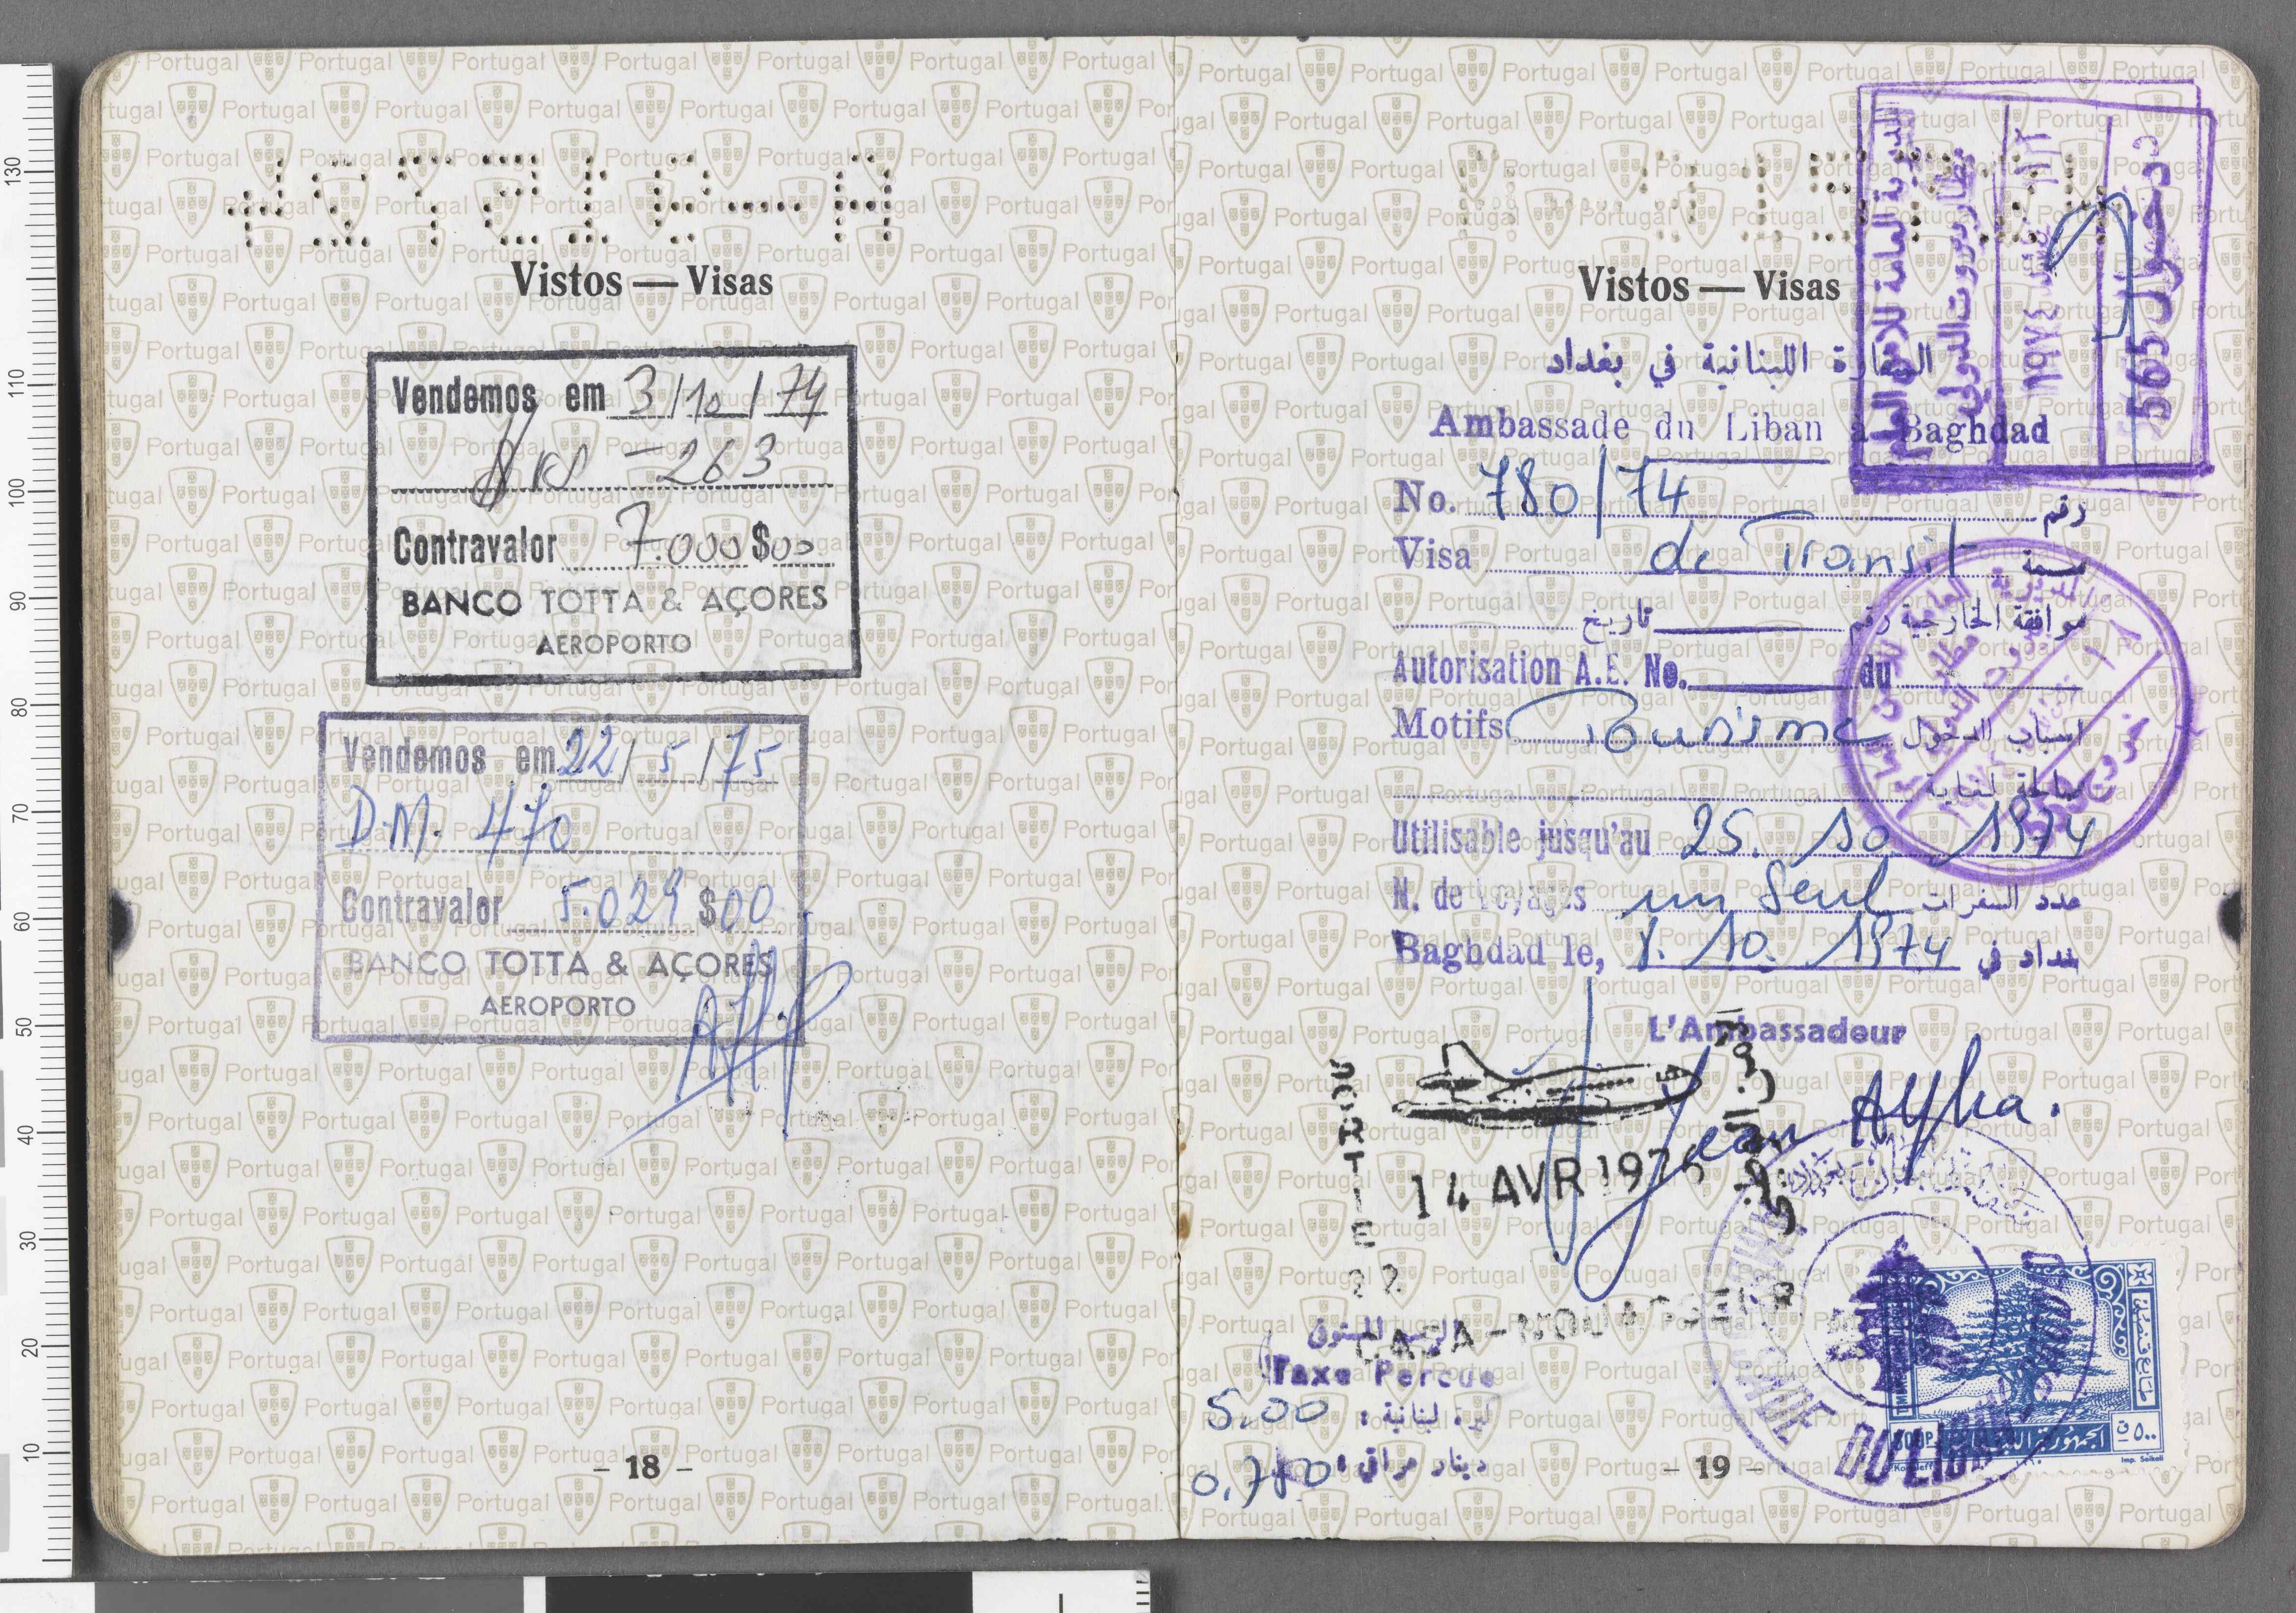 Vistos — Visas
Vendemos em 3/10/74
263
Contravalor 7.000$00
BANCO TOTTA & AÇORES
AEROPORTO
Vendemos em 22/5/75
D.M. 470
Contravalor 5.029$00
BANCO TOTTA & AÇORES
AEROPORTO
- 18 -
Vistos — Visas
دخول 565
المديرية العامة للأمن العام
مطار بيروت الدولي
السفارة اللبنانية في بغداد
Ambassade du Liban à Baghdad
No. 780/74 رقم
Visa de Transit سمة
موافقة الخارجية رقم تاريخ
Autorisation A.E. No. du
Motifs Tourisme اسباب الدخول
صالحة لغاية
Utilisable jusqu'au 25. 10 1974
N. de voyages un seul عدد السفرات
Baghdad le, 8. 10. 1974 بغداد في
L'Ambassadeur
خروج
SORTIE
14 AVR 1975
22
CASA-NOUASSEUR
Taxe Percue
5.00 ليرة لبنانية :
0,780 دينار عراقي :
DU LIBAN
500P
الجمهورية اللبنانية
٥٠٠
Imp. Seikali
- 19 -